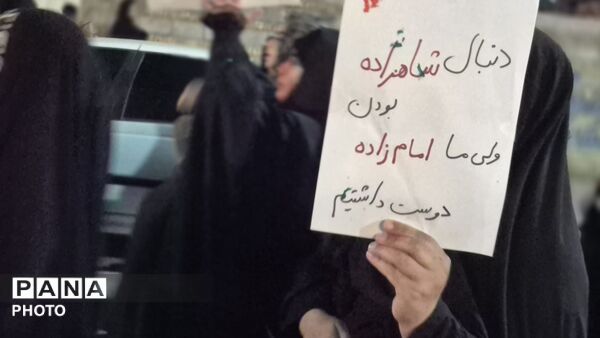 دنبال شاهزاده
بودن
ولی ما امام زاده
دوست داشتیم
PANA
PHOTO